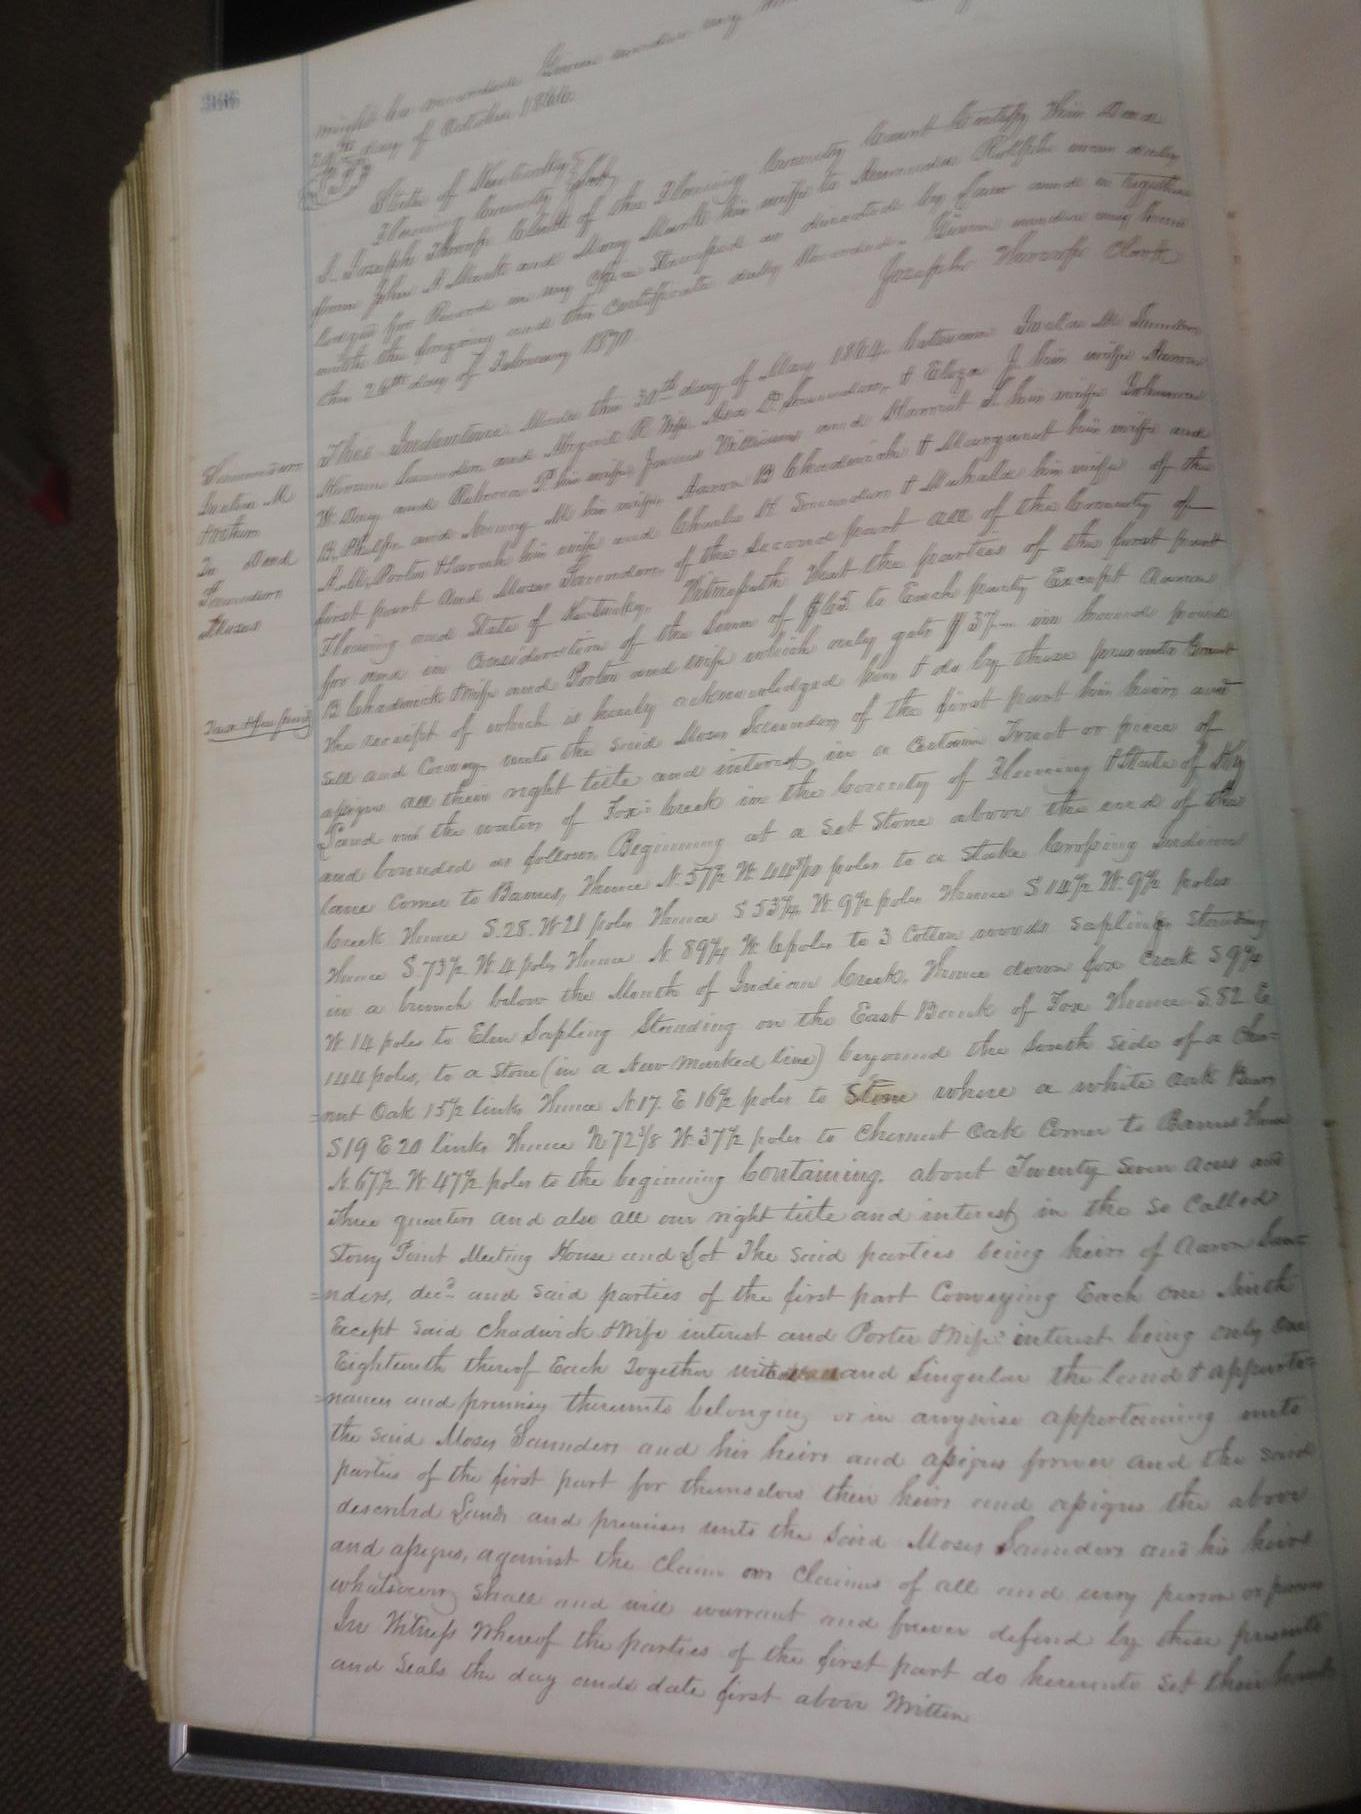 might be recorded Given under my
day of October 1866
State of Kentucky
Fleming County Sct
I, Joseph Throop Clerk of the Fleming County Court Certify this Deed
from John A Mark and Mary Mark his wife to was duly
lodged for Record in my Office Stamped as directed by Law and is together
with the foregoing and this certificate duly Recorded. Given under my hand
this 26th day of February 1870
Joseph Throop Clerk
Saunders
M
&others
To Deed
of
Saunders
Moses
This Indenture Made this 30th day of May 1864 between M Saunders
Saunders and his Wife D. Saunders, & Eliza J his wife Aaron
W and Rebecca P. his wife James Williams and Harriet S. his wife
B. Phelps and M his wife, Aaron B Chadwick & Margaret his wife and
A.M. Porter & Sarah his wife and Charles H Saunders & Mahala his wife of the
first part and Moses Saunders of the Second part all of the County of
Fleming and State of Kentucky, Witnesseth that the parties of the first part
for and in Consideration of the Sum of $65 to Each party Except Aaron
B Chadwick &wife and Porter and wife which only gets $37 in hand paid
the receipt of which is hereby acknowledged has & do by these presents Grant
sell and Convey unto the said Moses Saunders of the first part his heirs and
assigns all their right title and interest, in a Certain Tract or piece of
Land on the waters of Fox: Creek in the County of Fleming & State of Ky
and bounded as follows, Beginning at a set Stone above the end of the
Lane Corner to Barnes, thence N. 57½ W. 44 poles to a Stake Crossing Indian
Creek thence S. 28. W 21 poles thence S 53¾ W 9½ poles thence S 14½ W. 9½ poles
thence S. 73½ W 4 poles thence N. 89¾ W 6 poles to 3 Cotton woods Saplings Standing
in a bunch below the Mouth of Indian Creek, thence down fox creek S 9¾
W. 14 poles to Elm Sapling Standing on the East Bank of Fox thence S. 82 E
144 poles, to a Stone (in a New marked line) beyound the South side of a Ches=
=nut Oak 15½ links thence N 17. E 16½ poles to Stone where a white oak Bears
S 19 E 20 links thence N 72⅜ W 37½ poles to Chesnut Oak Corner to Barnes thence
N. 67½ W 47½ poles to the beginning Containing. about Twenty Seven acres and
three quarters and also all our right title and interest, in the so Called
Stony Point Meeting House and Lot The said parties being heirs of Aaron Sau=
=nders, decd and said parties of the first part Conveying Each one Ninth
Except said Chadwick &Wife interest and Porter &Wife: interest being only one
Eighteenth thereof Each Together with all and Singular the land & appurte=
=nances and premises thereunto belonging or in anywise appertaining unto
the said Moses Saunders and his heirs and assigns forever and the said
parties of the first part for themselves their heirs and assigns the above
described Lands and premises unto the Said Moses Saunders and his heirs
and assigns, against the claim or Claims of all and every person or persons
whatsoever, shall and will warrant and forever defend by these presents
In Witness Whereof the parties of the first part do hereunto set their hands
and Seals the day and date first above Written